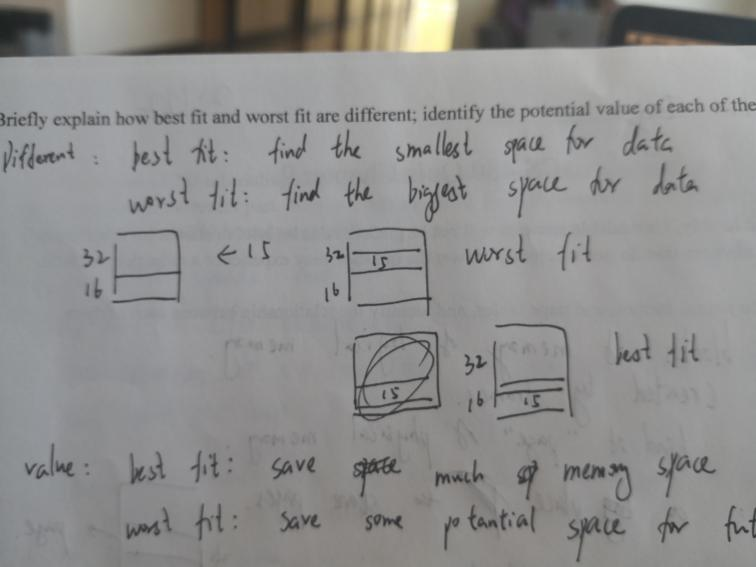 Briefly explain how best fit and worst fit are different; identify the potential value of each of the
Different: best fit: find the smallest space for data
worst fit: find the biggest space for data
32 ← 15 32 15 worst fit
16 16
32 best fit
15 16 15
value: best fit: save much memory space
worst fit: save some potantial space for fut